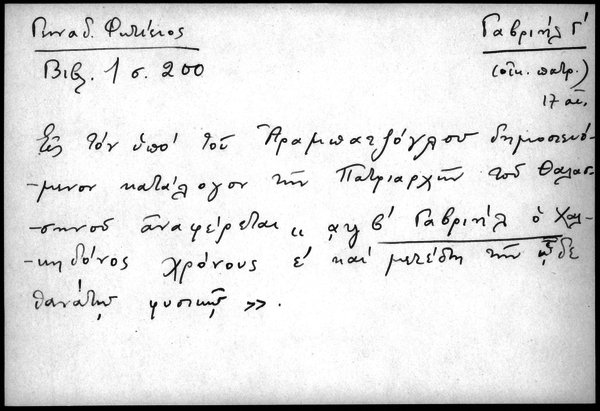 Γαβριήλ Γ'
Βιβλ. 1 σ. 200
(οἰκ. πατρ.)
17 αἰ.
Εἰς τόν ὑπό τοῦ Ἀραμπατζόγλου δημοσιευό-
-μενον κατάλογον τῶν Πατριαρχῶν τοῦ Θαλασ-
-σηνοῦ ἀναφέρεται « αψβ' Γαβριήλ ὁ Χαλ-
-κηδόνος χρόνους ε' καί μετέστη τῶν ὧδε
θανάτῳ φυσικῷ ».